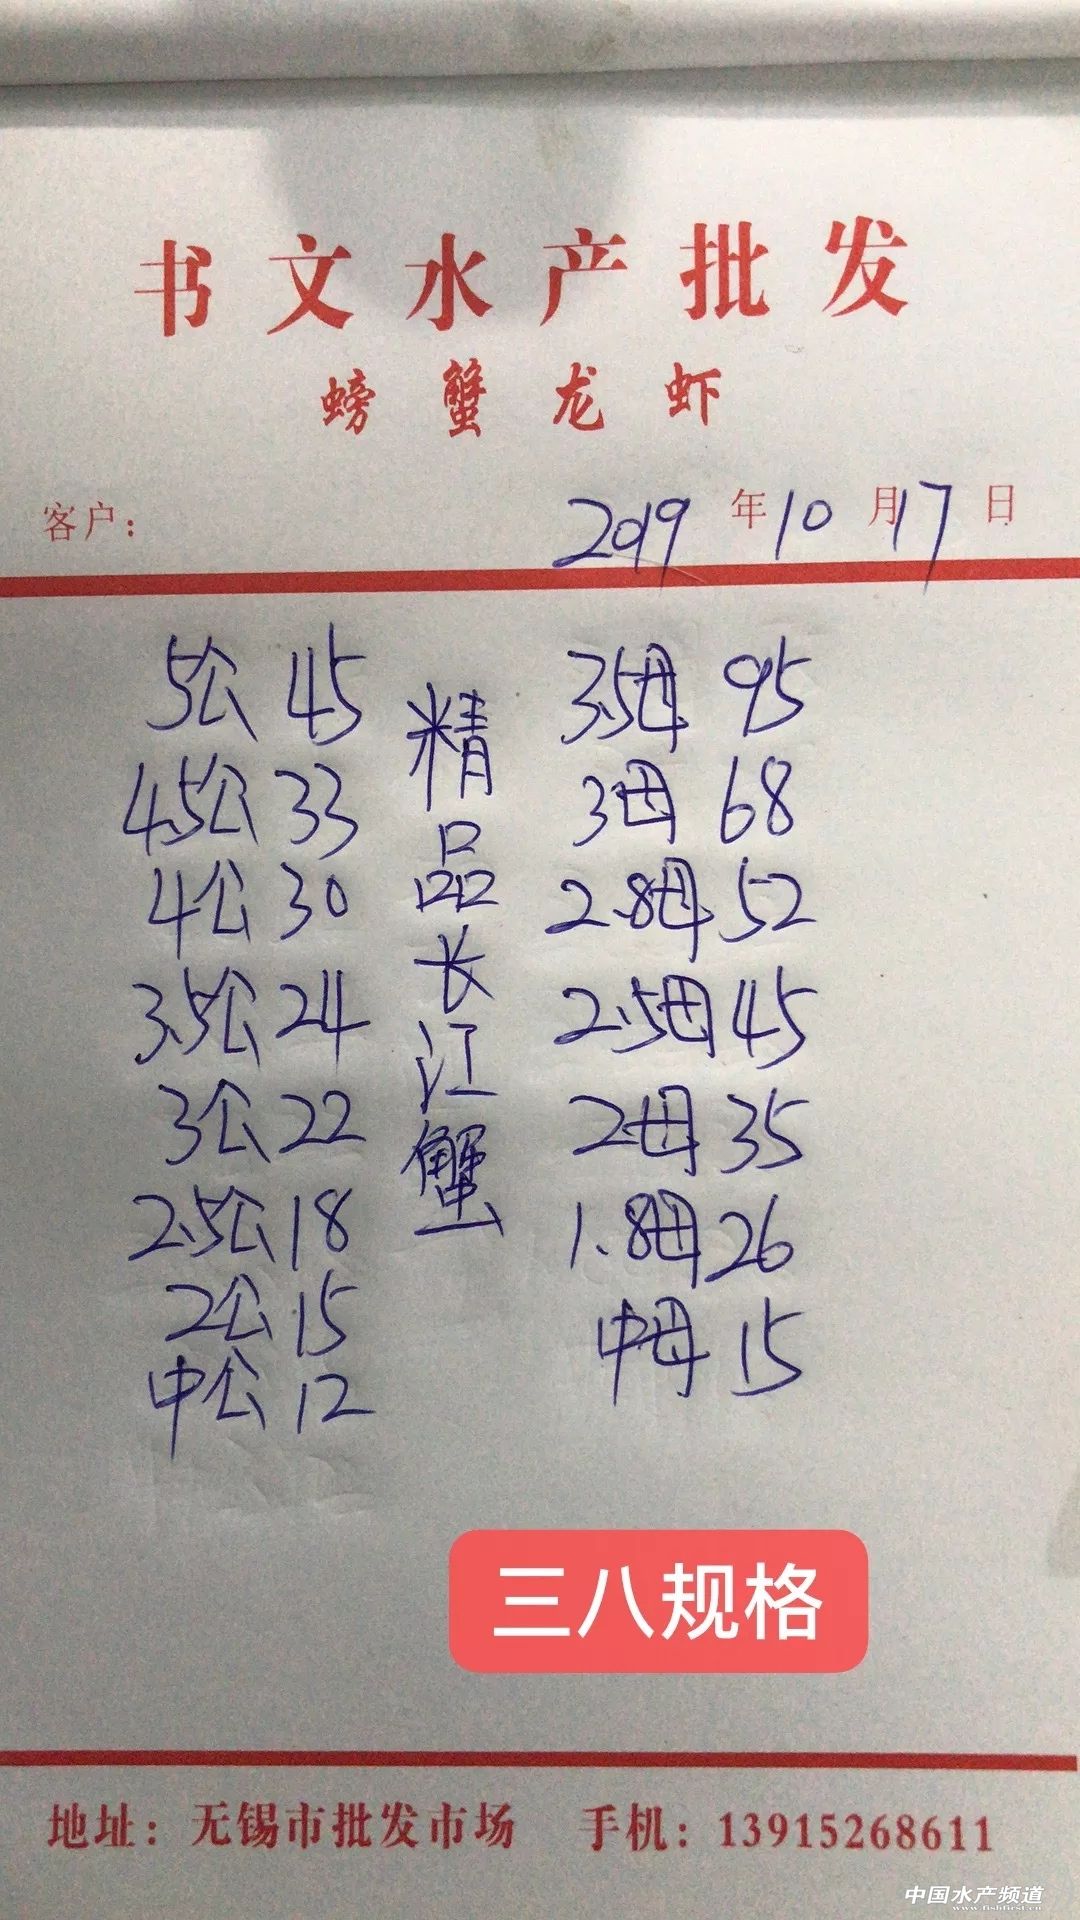 书文水产批发
螃蟹龙虾
客户：
2019年10月17日
5公 45
4.5公 33
4公 30
3.5公 24
3公 22
2.5公 18
2公 15
中公 12
精品长江蟹
3.5母 95
3母 68
2.8母 52
2.5母 45
2母 35
1.8母 26
中母 15
三八规格
地址：无锡市批发市场 手机：13915268611
中国水产频道
www.fishfirst.cn